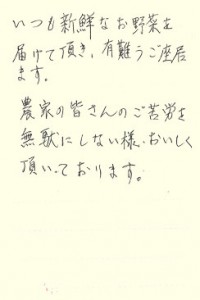 いつも新鮮なお野菜を
届けて頂き、有難うご座居
ます。
農家の皆さんのご苦労を
無駄にしない様、おいしく
頂いております。